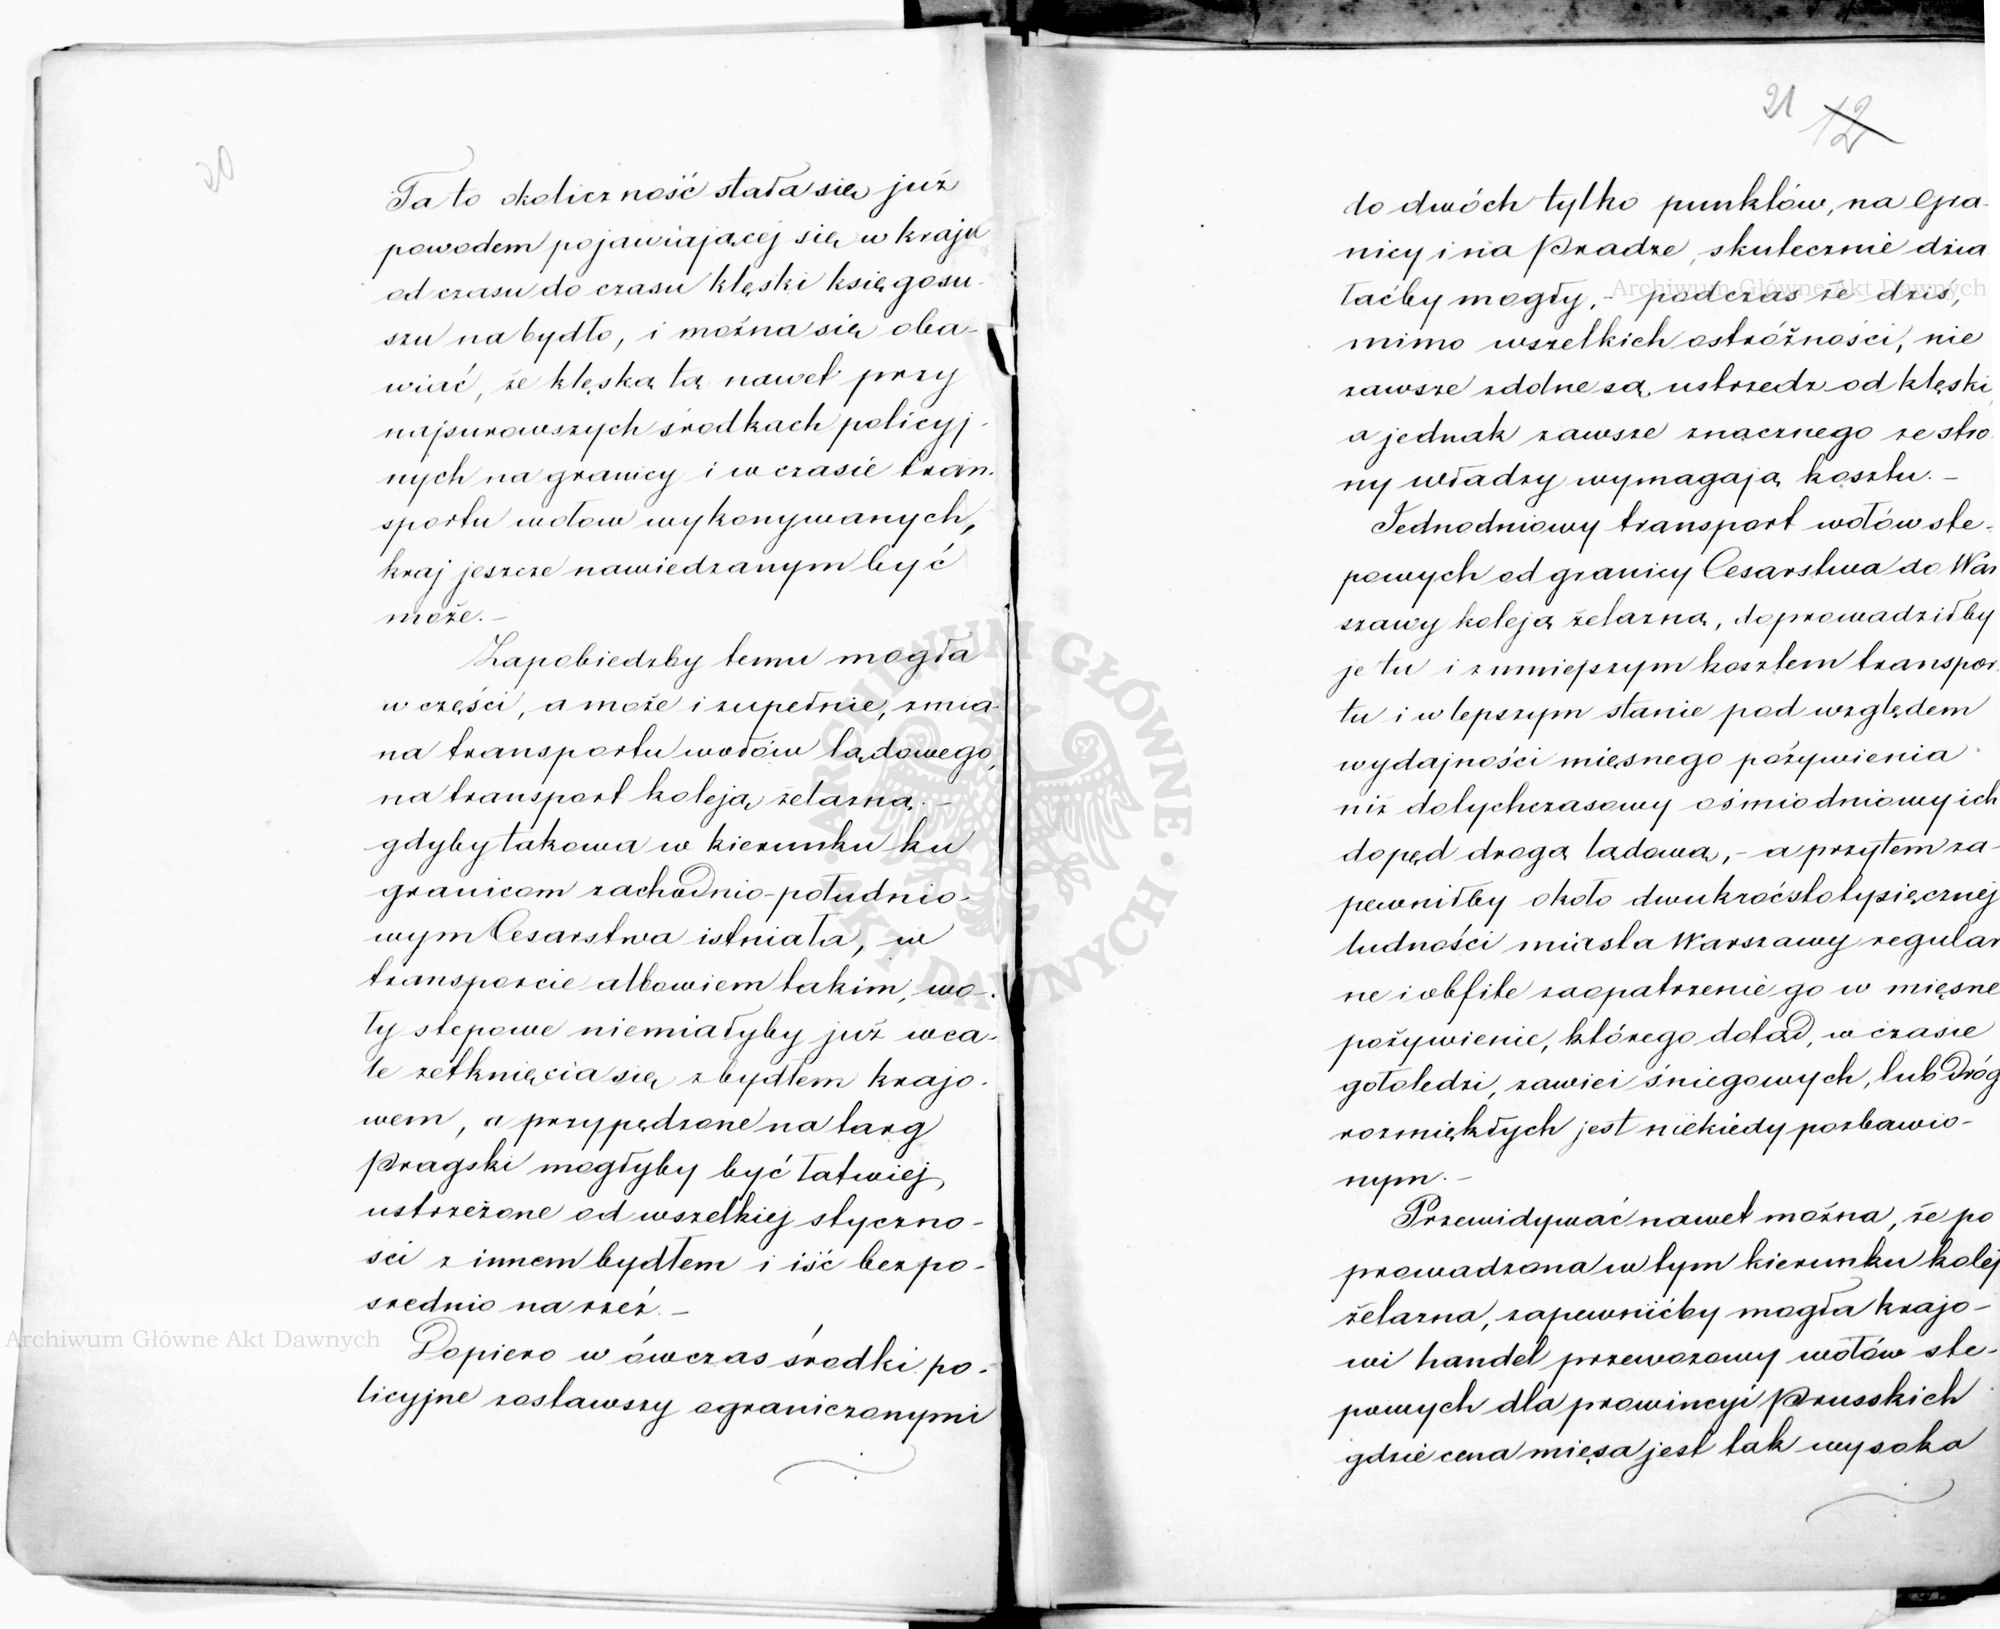 20
Ta to okoliczność stała się już
powodem pojawiającej się w kraju
od czasu do czasu klęski księgosu-
szu na bydło, i można się oba-
wiać, że klęska ta nawet przy
najsurowszych środkach policyj-
nych na granicy i w czasie tran-
sportu wołow wykonywanych,
kraj jeszcze nawiedzanym być
może. –
Zapobiedzby temu mogła
w części, a może i zupełnie, zmia-
na transportu wołów lądowego,
na transport koleją żelazną. –
gdyby takowa w kierunku ku
granicom zachodnio-południo-
wym Cesarstwa istniała, w
transporcie albowiem takim, wo-
ły stepowe niemiałyby już wca-
le zetknięcia się z bydłem krajo-
wem, a przypędzone na targ
Pragski mogłyby być łatwiej
ustrzeżone od wszelkiej styczno-
ści z innem bydłem i iść bezpo-
średnio na rzeź. –
Dopiero w ówczas środki po-
licyjne zostawszy ograniczonymi
21 12
do dwóch tylko punktów, na Gra-
nicy i na Pradze, skutecznie dzia
łaćby mogły, – podczas że dziś,
mimo wszelkich ostróżności, nie
zawsze zdolne są ustrzedz od klęski,
a jednak zawsze znacznego ze stro-
ny władzy wymagają kosztu. –
Jednodniowy transport wołów ste-
powych od granicy Cesarstwa do War
szawy koleją żelazną, doprowadziłby
je tu i zmniejszym kosztem transpor-
tu i w lepszym stanie pod względem
wydajności mięsnego pożywienia
niż dotychczasowy ośmiodniowy ich
dopęd drogą lądową, – a przytem za-
pewniłby około dwukroćstotysięcznej
ludności miasta Warszawy regular
ne i obfite zaopatrzenie go w mięsne
pożywienie, którego dotąd, w czasie
gołoledzi, zawiei śniegowych, lub dróg
rozmiękłych jest niekiedy pozbawio-
nym. –
Przewidywać nawet można, że po
prowadzona w tym kierunku kolej
żelazna, zapewnićby mogła krajo-
wi handel przewozowy wołów ste-
powych dla prowincyi Prusskich
gdzie cena mięsa jest tak wysoka
Archiwum Główne Akt Dawnych
Archiwum Główne Akt Dawnych
ARCHIWUM GŁÓWNE · AKT DAWNYCH ·